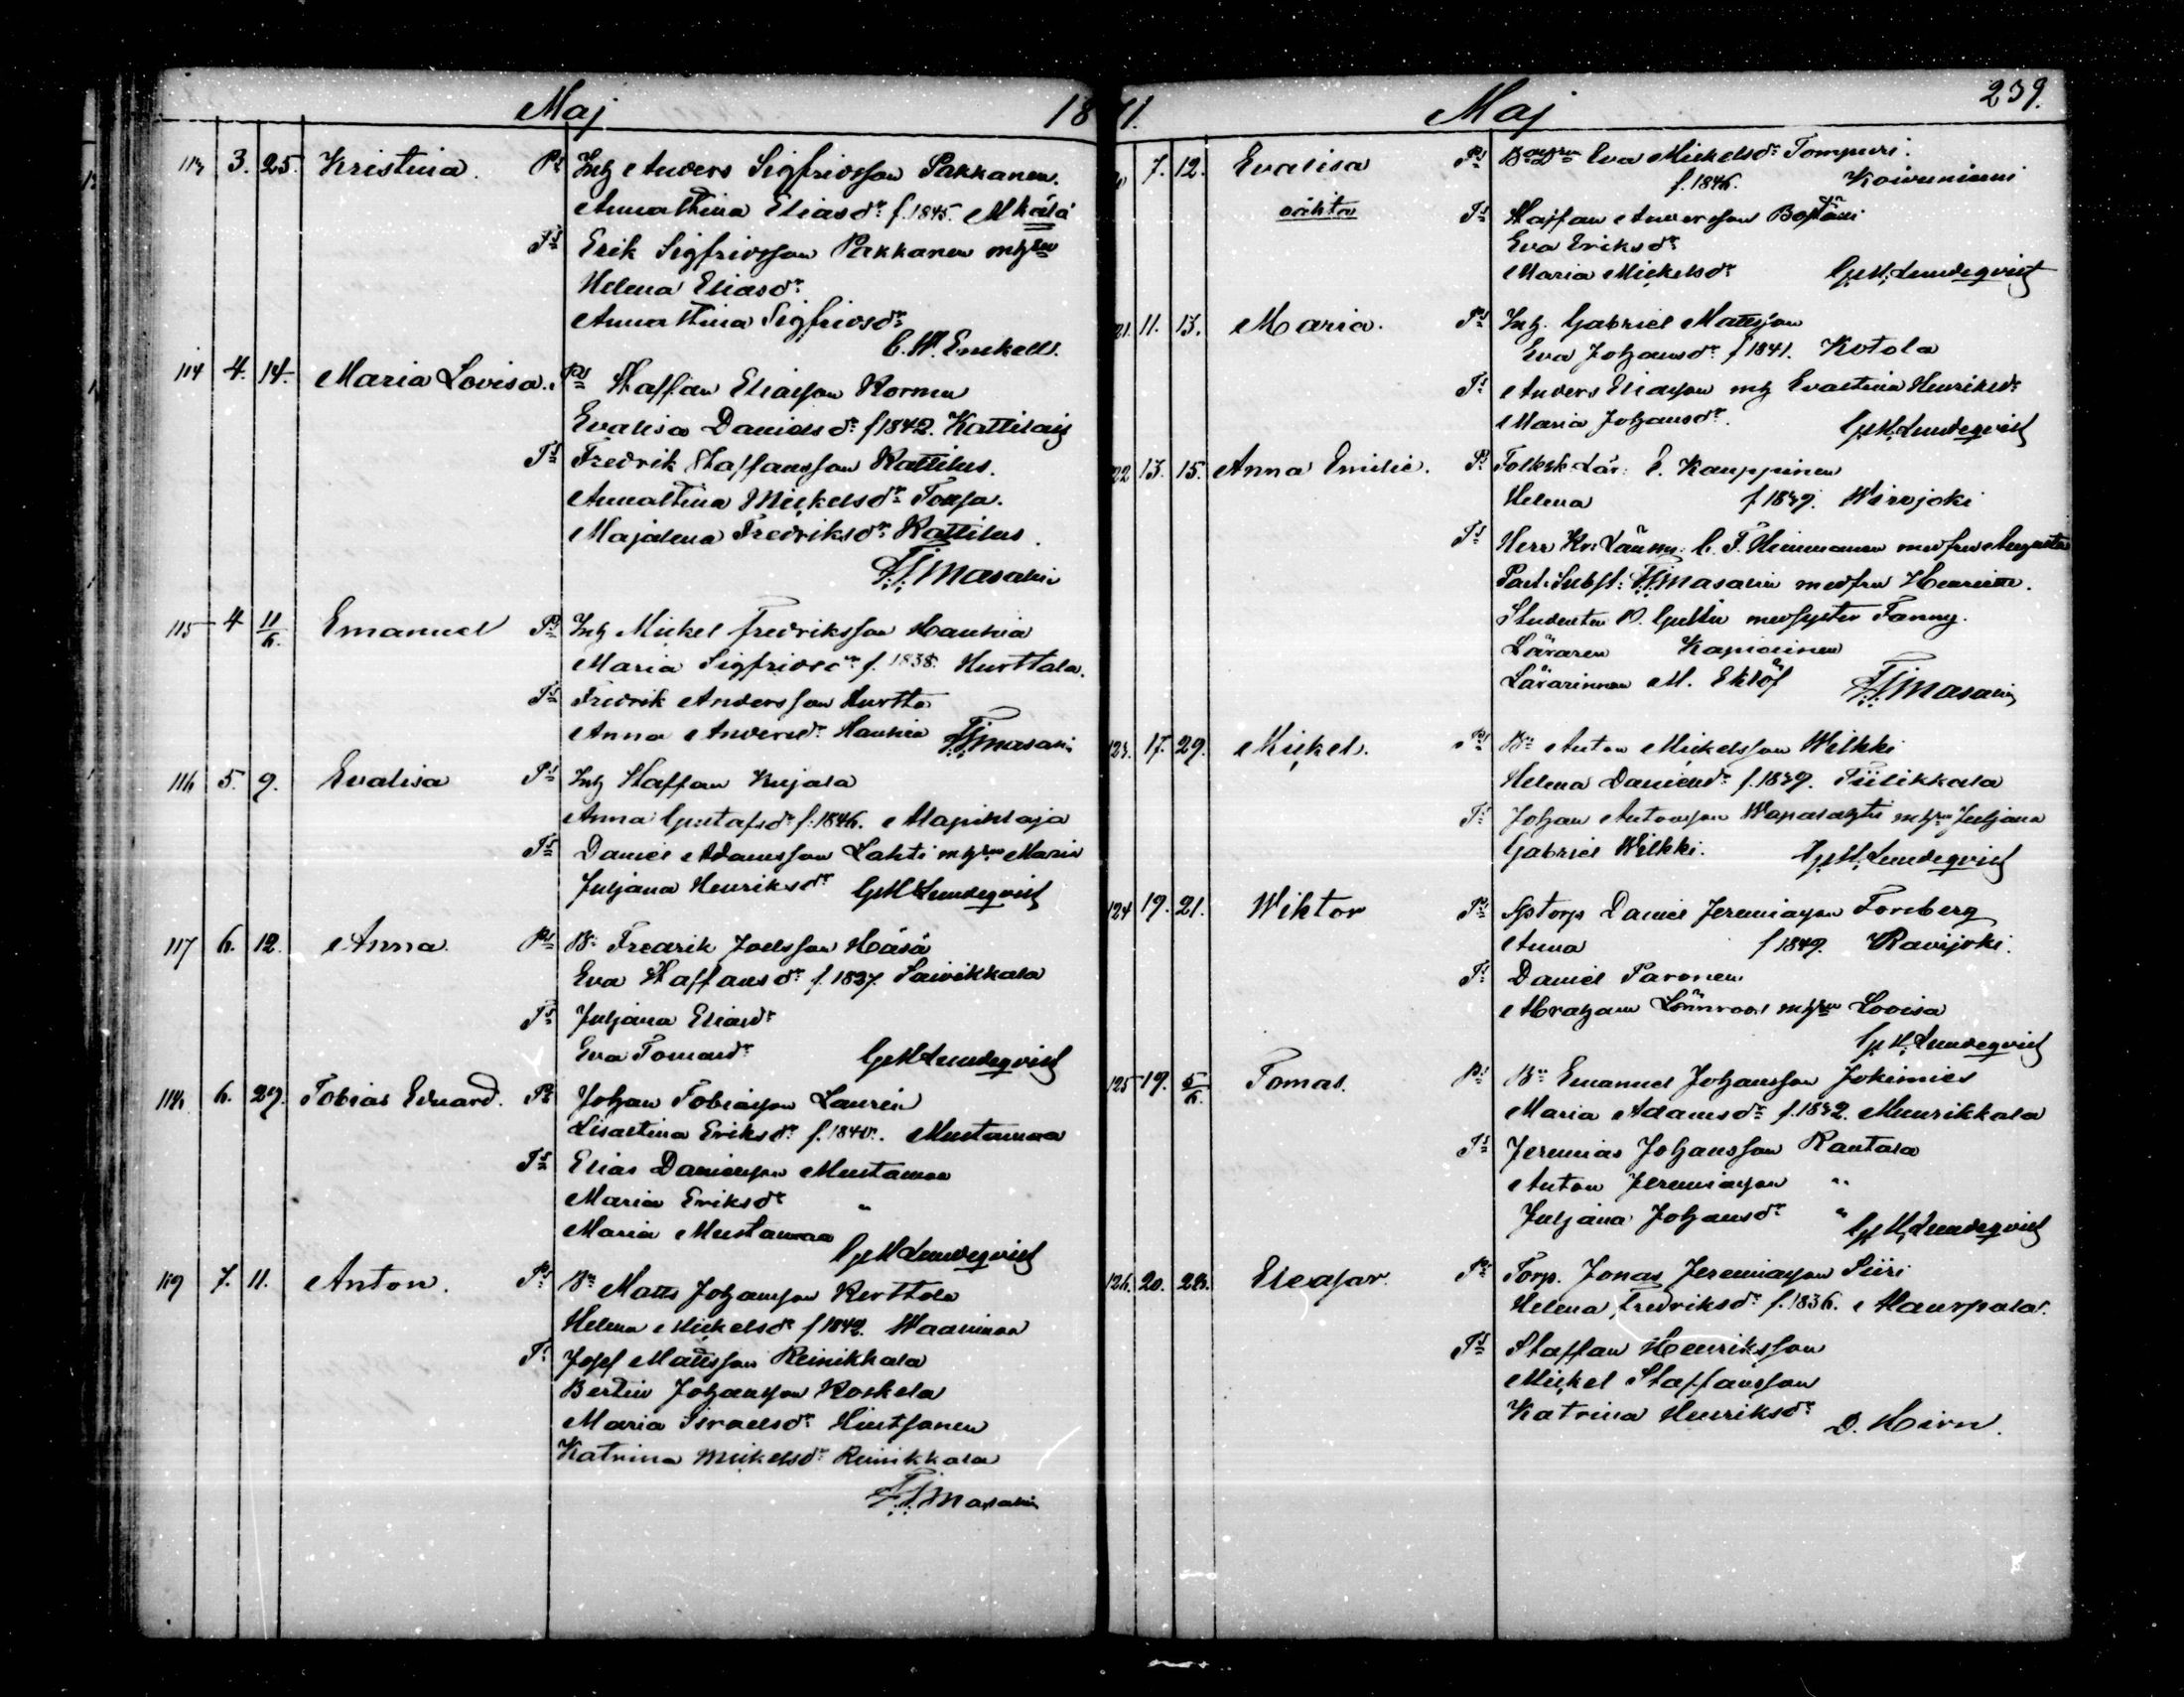 Maj 18
113 3. 25. Kristina. Ps Inh Anders Sigfridsson Pakkanen.
Annastina Eliasdr f. 1845. Mkälä
Ts Erik Sigfridsson Pakkanen mhu
Helena Eliasdr
Annastina Sigfridsdr
C. W. Enckell.
114 4. 14. Maria Lovisa. Ps Staffan Eliasson Kormu
Evalisa Danielsdr f 1842. Kattelais
Ts Fredrik Staffansson Kattilus.
Annastina Mickelsdr Tousa.
Majalena Fredriksdr Kattilus.
F. J. Masalin
115 4 11/6. Emanuel Ps Inh Mickel Fredriksson Haukia
Maria Sigfridsdr f. 1838. Hurttala.
Ts Fredrik Andersson Hurtta
Anna Andersdr Haukia F. J. Masalin
116 5. 9. Evalisa Ps Inh Staffan Kujala
Anna Gustafsdr f. 1846.
Ts Daniel Adamsson Lahti mhu Maria
Juljana Henriksdr G. M. Lundeqvist
117 6. 12. Anna. Ps B. Fredrik Joelsson Häsä
Eva Staffansdr f. 1837. Saivikkala
Ts Juljana Eliasdr
Eva Tomasdr G. M. Lundeqvist
118. 6. 29. Tobias Eduard. Ps Johan Tobiasson Laurin
Lisastina Eriksdr f. 1840. Mustamaa
Ts Elias Danielsson Mustamaa
Maria Eriksdr "
Maria Mustamaa
G. M. Lundeqvist
119 7. 11. Anton. Ps Bn Matts Johansson Kerttola
Helena Mickelsdr f 1842. Waanimaa
Ts Josef Mattsson Reinikkala
Bertin Johansson Koskela
Maria Israelsdr Hintsanen
Katrina Mickelsdr Reinikkala
F. J. Masalin
71. Maj 239.
7. 12. Evalisa Ps Eva Mickelsdr Tompuri.
oäkta f. 1846. Koivuniemi
Ts Staffan Andersson
Eva Eriksdr
Maria Mickelsdr G. M. Lundeqvist
21. 11. 13. Maria. Ps Inh. Gabriel Mattsson
Eva Johansdr f 1841. Kotola
Ts Anders Eliasson mh Evastina Henriksdr
Maria Johansdr. G. M. Lundeqvist
22 13. 15. Anna Emilie. Ps Folksk. Lär: E. Kauppinen
Helena f 1849. Wirojoki
Ts Herr Kr: Länsm. C. F. Heimonen med fru Augusta
Past: Subst: F. J. Masalin med fru Henriette.
Studenten med syster Fanny.
Läraren Kapiainen
Lärarinnan M. Eklöf F. J. Masalin
123. 17. 29. Mickel. Ps Bn Anton Mickelsson Wilkki
Helena Danielsdr f. 1849. Pülikkala
Ts Johan Antonsson Wapalahti mhu Juljana
Gabriel Wilkki. G. M. Lundeqvist
124 19. 21. Wiktor Ps Sptorp Daniel Jeremiasson Forsberg
Anna f 1849. Ravijoki.
Ts Daniel Paronen
Abraham Lönnroos mhu Lovisa
G. M. Lundeqvist
125 19. 5/6. Tomas. Ps Bn Emanuel Johansson Jokimies
Maria Adamsdr f. 1832. Muurikkala
Ts Jeremias Johansson Rantala
Anton Jeremiasson "
Juljana Johansdr " G. M. Lundeqvist
126. 20. 28. Eleasar. Ps Torp. Jonas Jeremiasson Siiri
Helena Fredriksdr f. 1836.
Ts Staffan Henriksson
Mickel Staffansson
Katrina Henriksdr D. Hirn.